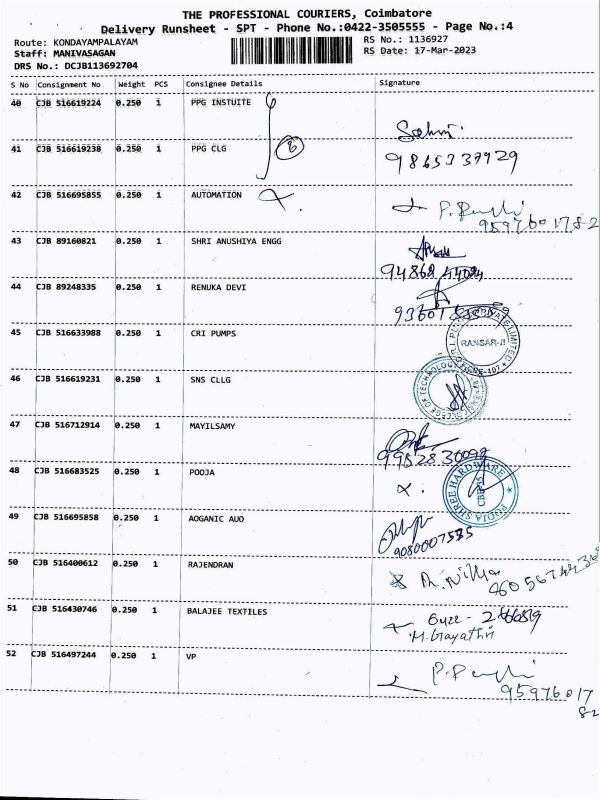 THE PROFESSIONAL COURIERS, Coimbatore
Delivery Runsheet - SPT - Phone No.:0422-3505555 - Page No.:4
Route: KONDAYAMPALAYAM
RS No.: 1136927
Staff: MANIVASAGAN
RS Date: 17-Mar-2023
DRS No.: DCJB113692704
S No Consignment No Weight PCS Consignee Details Signature
40 CJB 516619224 0.250 1 PPG INSTUITE
41 CJB 516619238 0.250 1 PPG CLG
42 CJB 516695855 0.250 1 AUTOMATION
9597601782
43 CJB 89160821 0.250 1 SHRI ANUSHIYA ENGG
44 CJB 89248335 0.250 1 RENUKA DEVI
45 CJB 516633988 0.250 1 CRI PUMPS
46 CJB 516619231 0.250 1 SNS CLLG
47 CJB 516712914 0.250 1 MAYILSAMY
48 CJB 516683525 0.250 1 POOJA
POOJA SHREE HARDWARE
CBE-35
49 CJB 516695858 0.250 1 AOGANIC AUO
9080007535
50 CJB 516400612 0.250 1 RAJENDRAN
51 CJB 516430746 0.250 1 BALAJEE TEXTILES
M. Gayathri
52 CJB 516497244 0.250 1 VP
95976017
82